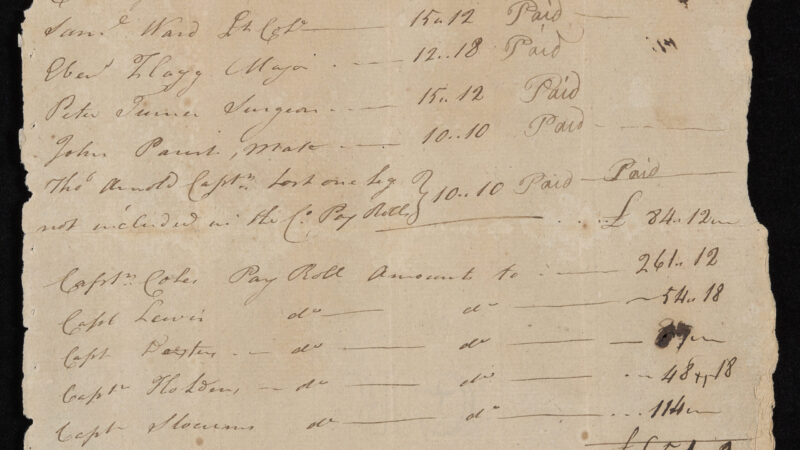 Sam.l Ward Lt Col. 15.. 12 Paid
Eben.r Flagg Major 12..18 Paid
Peter Turner Surgeon 15.. 12 Paid
John Parish, Mate 10..10 Paid
Tho.s Arnold Capt.n lost one leg 10..10 Paid Paid
not included in the C.o Pay Rolls £ 84.. 12
Capt.n Coles Pay Roll Amounts to 261.. 12
Capt Lewis do do 54.. 18
Capt do do
Capt.n Holdens do do 48 18
Capt.n Slocums do do 114